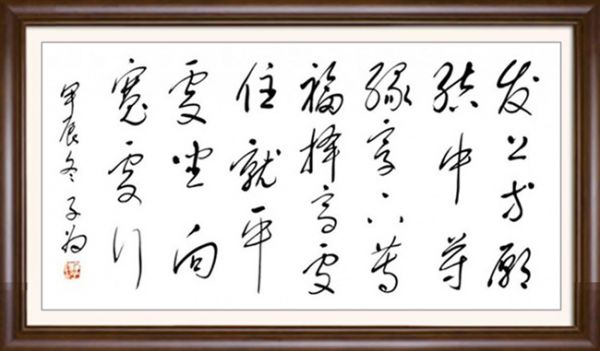 发上等愿
结中等
缘享下等
福择高处
住就平
处坐向
宽处行
甲辰冬子